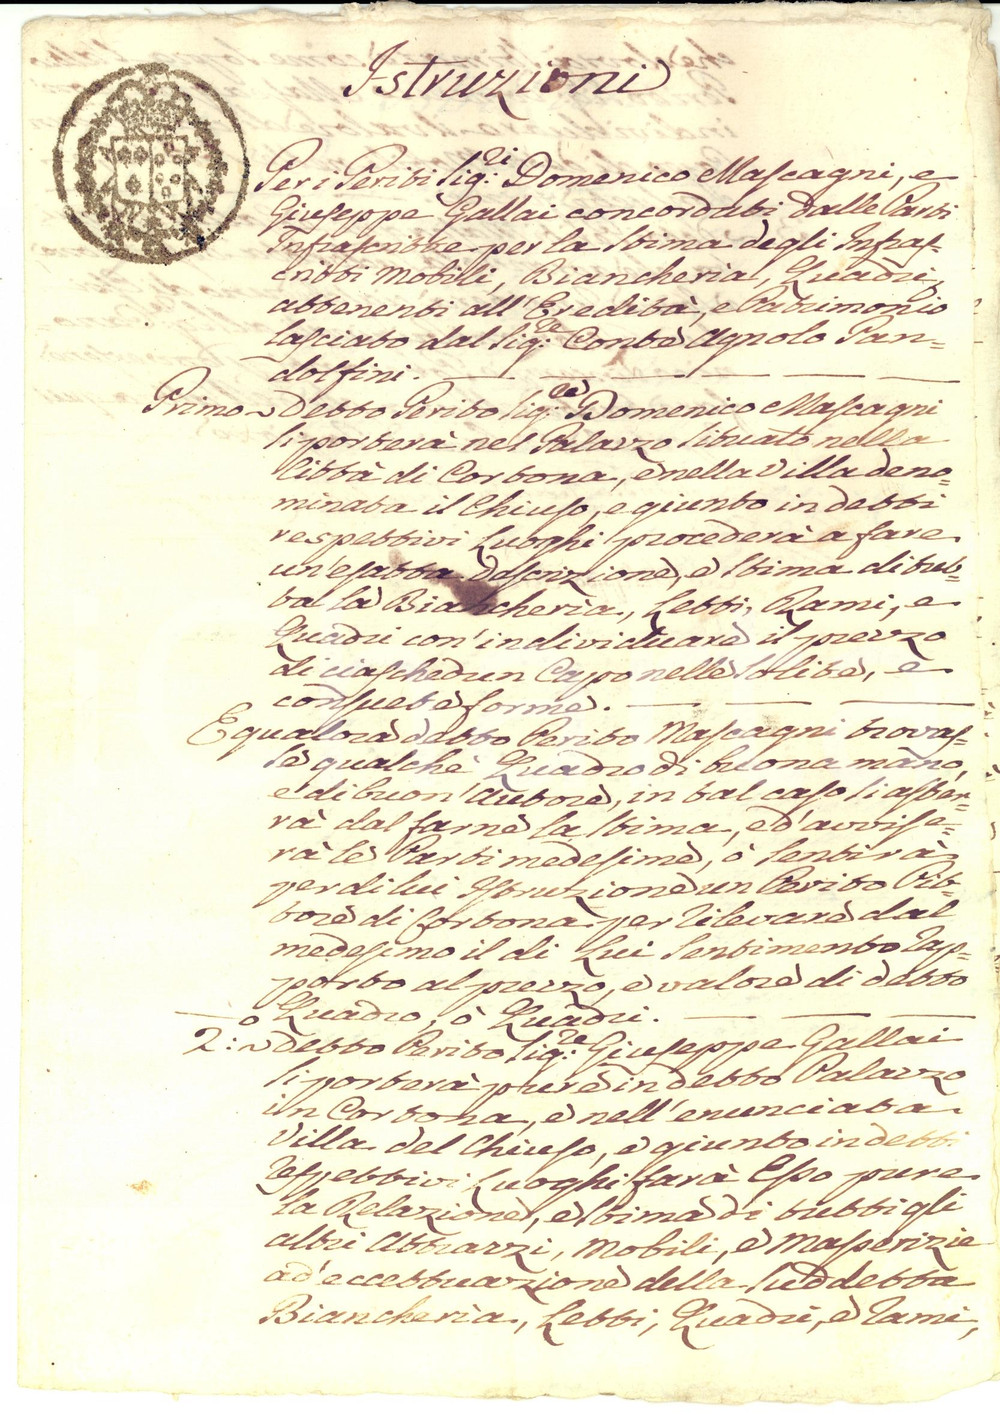 Istruzioni
Per i Periti Sig:ri Domenico Mascagni, e
Giuseppe Gallai concordati dalle Parti
Infrascritte per la Stima degli Infras-
critti Mobili, Biancheria, Quadri,
attenenti all'Eredità, e Patrimonio
lasciato dal Sig:re Conte Agnolo Pan-
dolfini.
Primo ~ Detto Perito Sig:re Domenico Mascagni
si porterà nel Palazzo situato nella
Città di Cortona, e nella Villa deno-
minata il Chiuso, e giunto in detti
respettivi Luoghi procederà a fare
un'esatta Descrizione, e Stima di tut-
ta la Biancheria, Letti, Rami, e
Quadri con'individuare il prezzo
di ciaschedun Capo nelle solite, e
consuete forme.
E qualora detto Perito Mascagni trovas-
se qualche Quadro di buona mano,
e di buon'Autore, in tal caso si aster-
rà dal farne la Stima, e d'avvise-
rà le Parti medesime, ò sentirà
per di lui Istruzione un Perito Pit-
tore di Cortona per rilevare dal
medesimo il di Lui sentimento rap-
porto al prezzo, e valore di detto
Quadro, ò Quadri.
2:o ~ detto Perito Sig:re Giuseppe Gallai
si porterà pure in detto Palazzo
in Cortona, e nell'enunciata
Villa del Chiuso, e giunto in detti
respettivi Luoghi farà Esso pure
la Relazione, e Stima di tutti gli
altri Attrazzi, Mobili, e Masserizie
ad'eccettuazione della suddetta
Biancheria, Letti, Quadri, e rami,